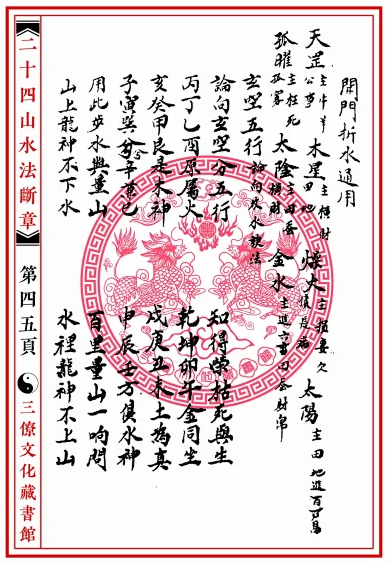 開門折水通用
天罡 主牛羊公事 木星 主横財田地 燥火 主損妻 太陽 主田地進百
孤曜 主狂死孤寡 太陰 主田蚕横財 金水 主進六畜田谷財帛
玄空五行 論向及水設法
論向玄空分五行 知得榮枯死與生
丙丁乙酉原屬火 乾坤卯午金同生
亥癸甲艮是木神 戌庚丑未土為真
子寅巽辛 申辰壬方俱水神
用此步水與量山 百里量山一晌間
山上龍神不下水 水裡龍神不上山
二十四山水法斷章
第四五頁
三僚文化藏書館